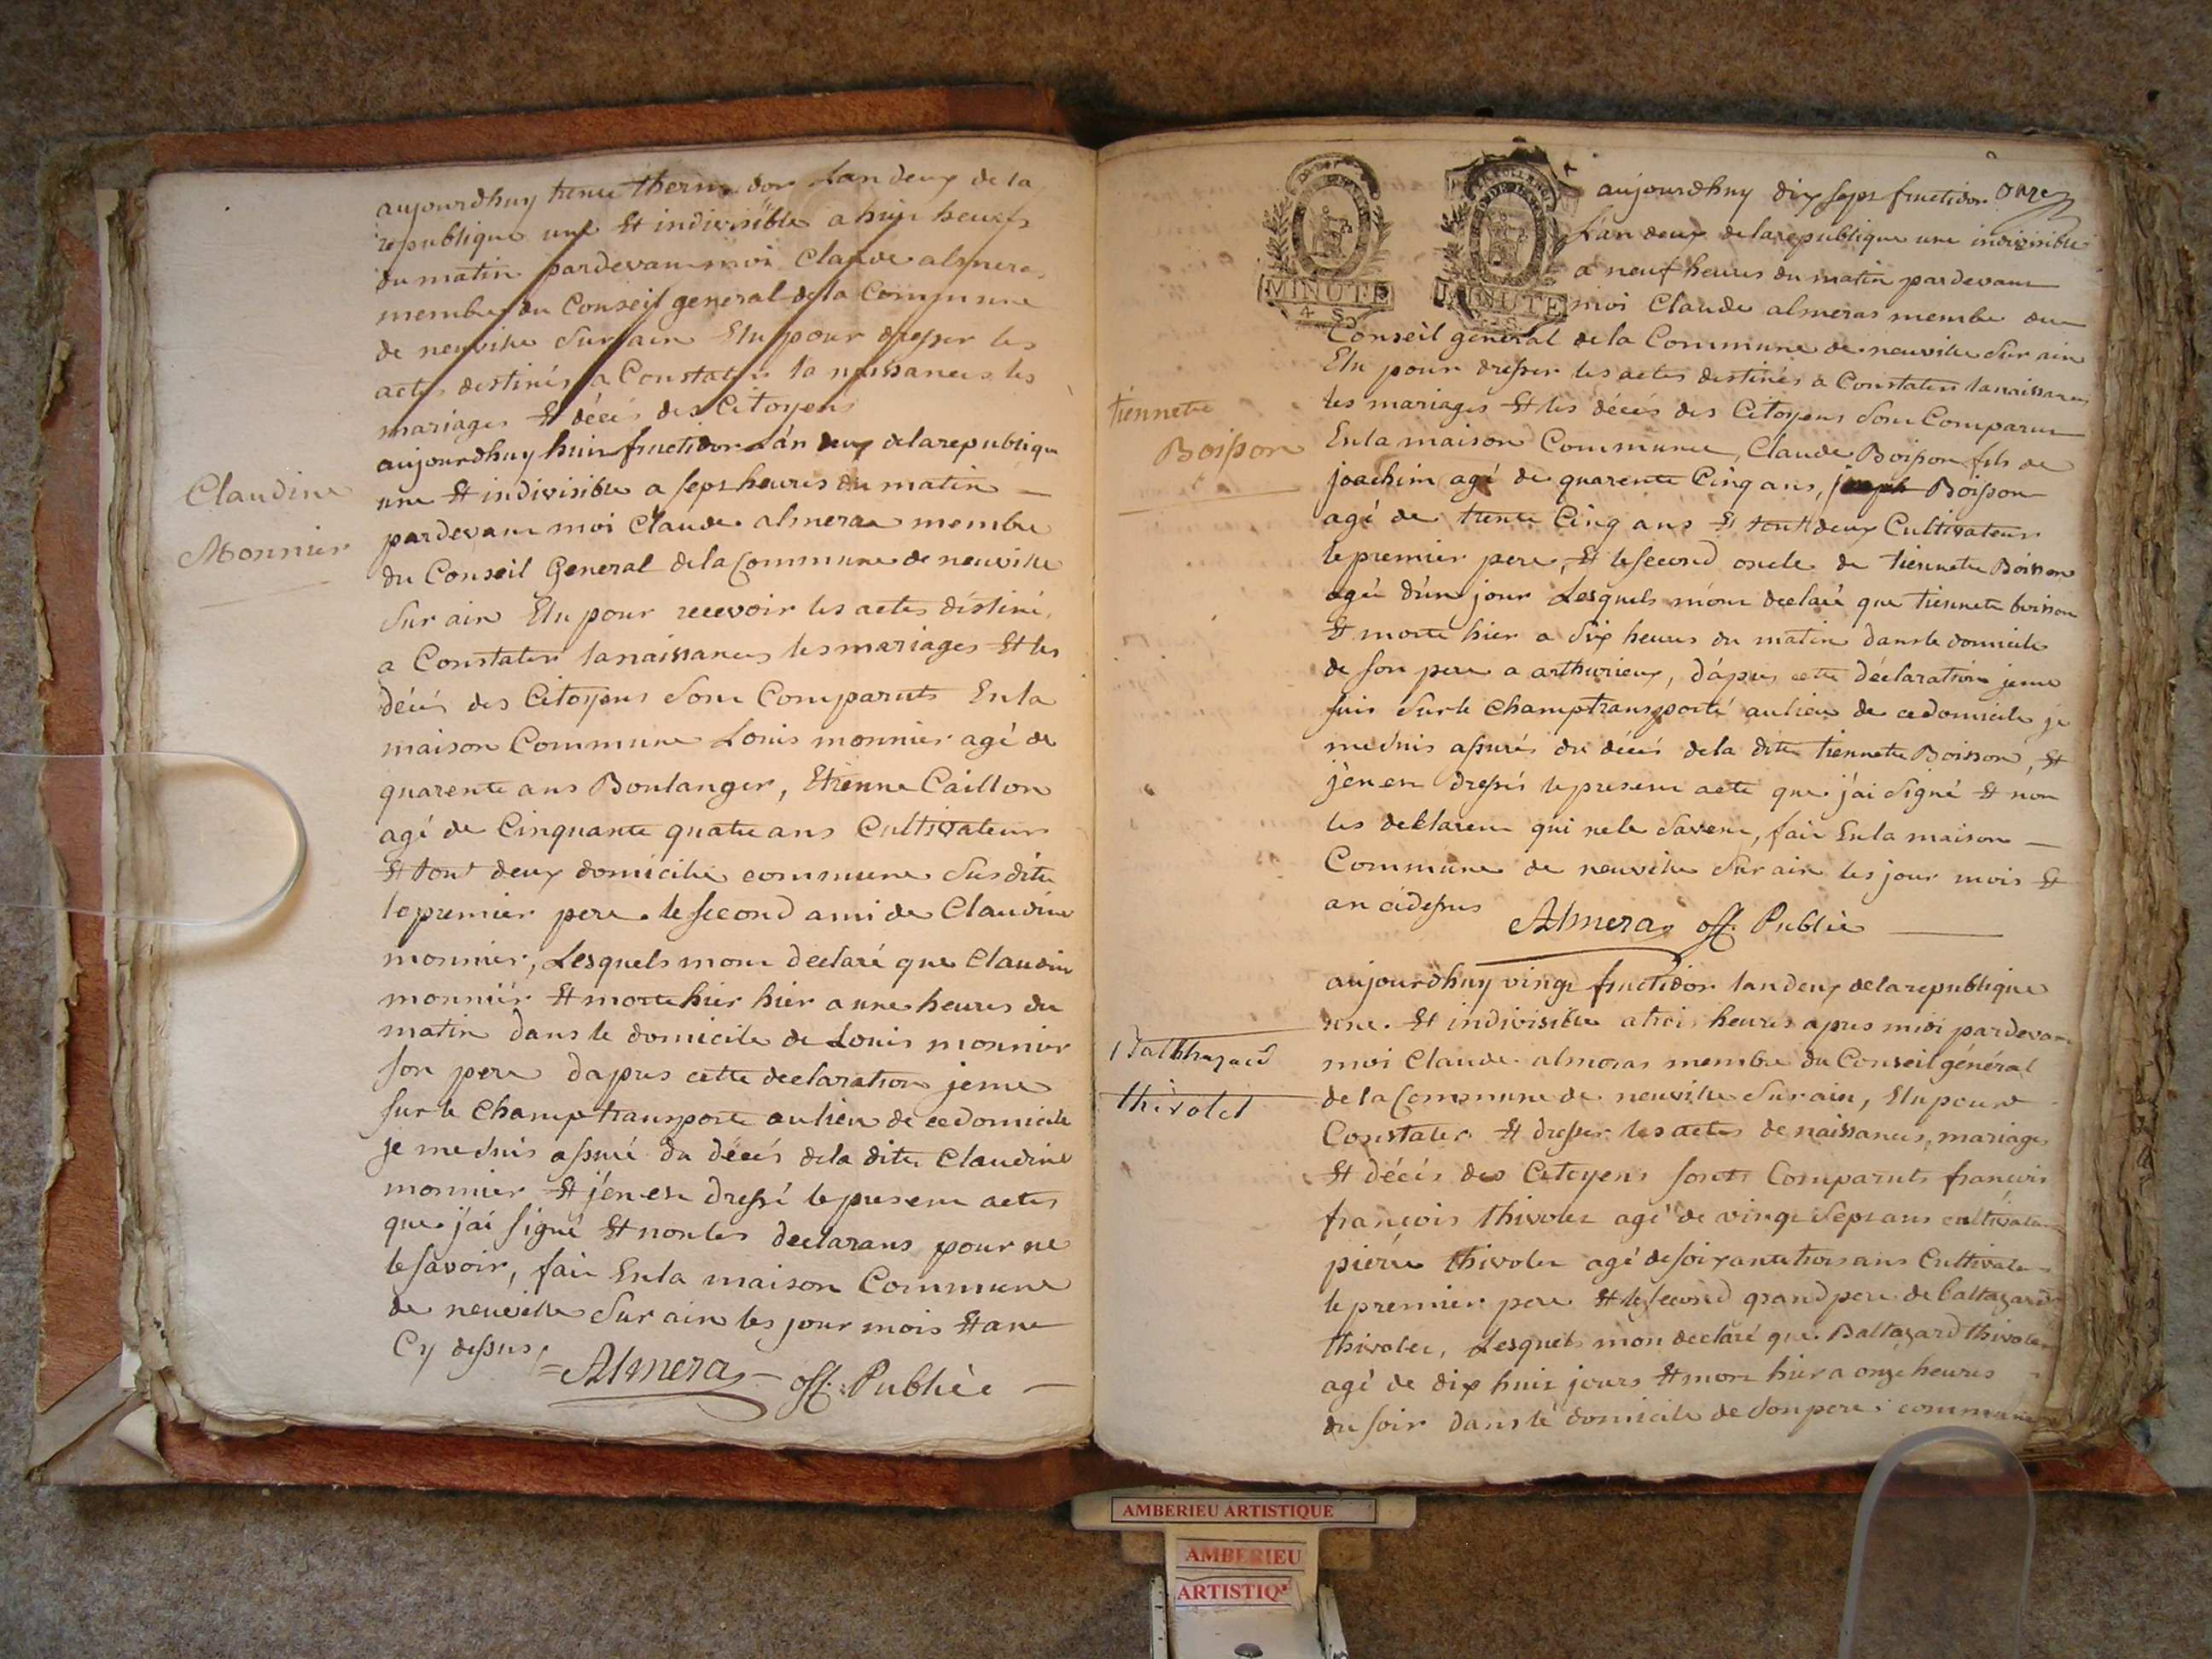 aujourdhuy trente thermidor Lan deux de la
republique une Et indivisible a huit heures
du matin pardevant moi Claude almeras
membre du Conseil general de la Commune
de neuville Sur ain Elu pour dresser les
actes destinés a Constater la naissances les
mariages Et décés des Citoyens
aujourdhuy huit fructidor Lán deux delarepublique
une Et indivisible a sept heures du matin
Claudine
Monnier
pardevant moi Claude almeras membre
du Conseil General dela Commune de neuville
Sur ain Elu pour recevoir les actes déstiné
a Constater lanaissances les mariages Et les
décés des Citoyens Sont Comparuts En la
maison Commune Louis monnier agé de
quarente ans Boulanger, Etienne Caillon
agé de Cinquante quatre ans Cultivateur
Et tout deux domicilié commune Susdite
le premier pere le second ami de Claudine
monnier, Lesquels mont declaré que Claudine
monniér Et morte hier hier a une heures du
matin dans le domicile de Louis monnier
son pere dapres cette declaration jeme
sur le champ transporte au lieu de cedomicile
je me Suis assuré du décés dela dite Claudine
monnier Et j'en ei dressé le present actes
que j'ai signé Et non les declarans pour ne
le savoir, fait En la maison Commune
de neuville Sur ain les jour mois Et an
Cy dessus
Almeras off. Publie
MINUTE
4 S
MINUTE
onze
aujourdhuy dix sept fructidor
Lán deux delarepublique une indivisible
a neuf heures du matin pardevant
moi Claude almeras membre du
Conseil général de la Commune de neuville Sur ain
Elu pour dresser les actes destinés a Constater lanaissances
les mariages Et les décés des Citoyens Sont Comparut
tiennette
Boisson
En la maison Commune, Claude Boisson fils de
joachim agé de quarente Cinq ans, joseph Boisson
agé de trente Cinq ans Et tout deux Cultivateur
le premier pere, Et le second oncle de tiennette Boisson
agée d'un jour Lesquels m'ont declaré que tiennete boisson
Et morte hier a Six heures du matin dans le domicile
de son pere a arthurieux, d'apres cette déclaration jeme
suis Sur le champ transporté au lieu de ce domicile je
me Suis assurés du décés dela dite tiennette Boisson, Et
j'en ei dressés le present acte que j'ai Signé Et non
les deklarent qui ne le Savent, fait En la maison
Commune de neuville Sur ain les jour mois Et
an cidessus
Almeras off. Publie
aujourdhuy vingt fructidor lan deux delarepublique
une Et indivisible a trois heures apres midi pardevant
Balthazard
thivolet
moi Claude almeras membre du Conseil général
de la Commune de neuville Sur ain, Elu pour
Constater Et dresser les actes de naissances, mariages
Et décés des Citoyens sont Comparuts francois
françois thivolet agé de vingt Sept ans cultivateur
piérre thivolet agé de soixante trois ans Cultivateur
le premier pere Et le second grand pere de baltazard
thivolet, Lesquels mon declaré que Baltazard thivolet
agé de dix huit jours Et mort hier a onze heures
du soir dans le domicile de Son pere commune
AMBERIEU ARTISTIQUE
AMBERIEU
ARTISTIQ